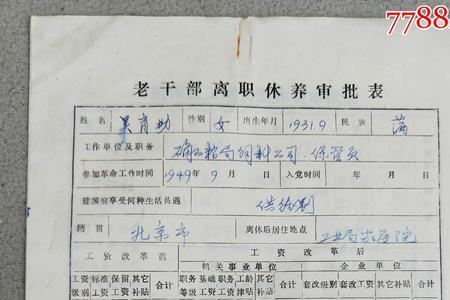 7788
老干部离职休养审批表
姓名 吴育勤 性别 女 出生年月 1931.9 民族 满
工作单位及职务 确山粮局饲料公司·保管员
参加革命工作时间 1949年9月 日 入党时间 年 月 日
建国前享受何种生活待遇 供给制
籍贯 北京市 离休后居住地点 工业局家属院
工资改革前 工资改革后
机关事业单位 企业单位
工资级别 标准工资 保留工资 其它补贴 合计 职务工资 基础工资 工龄津贴 其它补贴 合计 套改级别 套改工资 其它补贴 合计